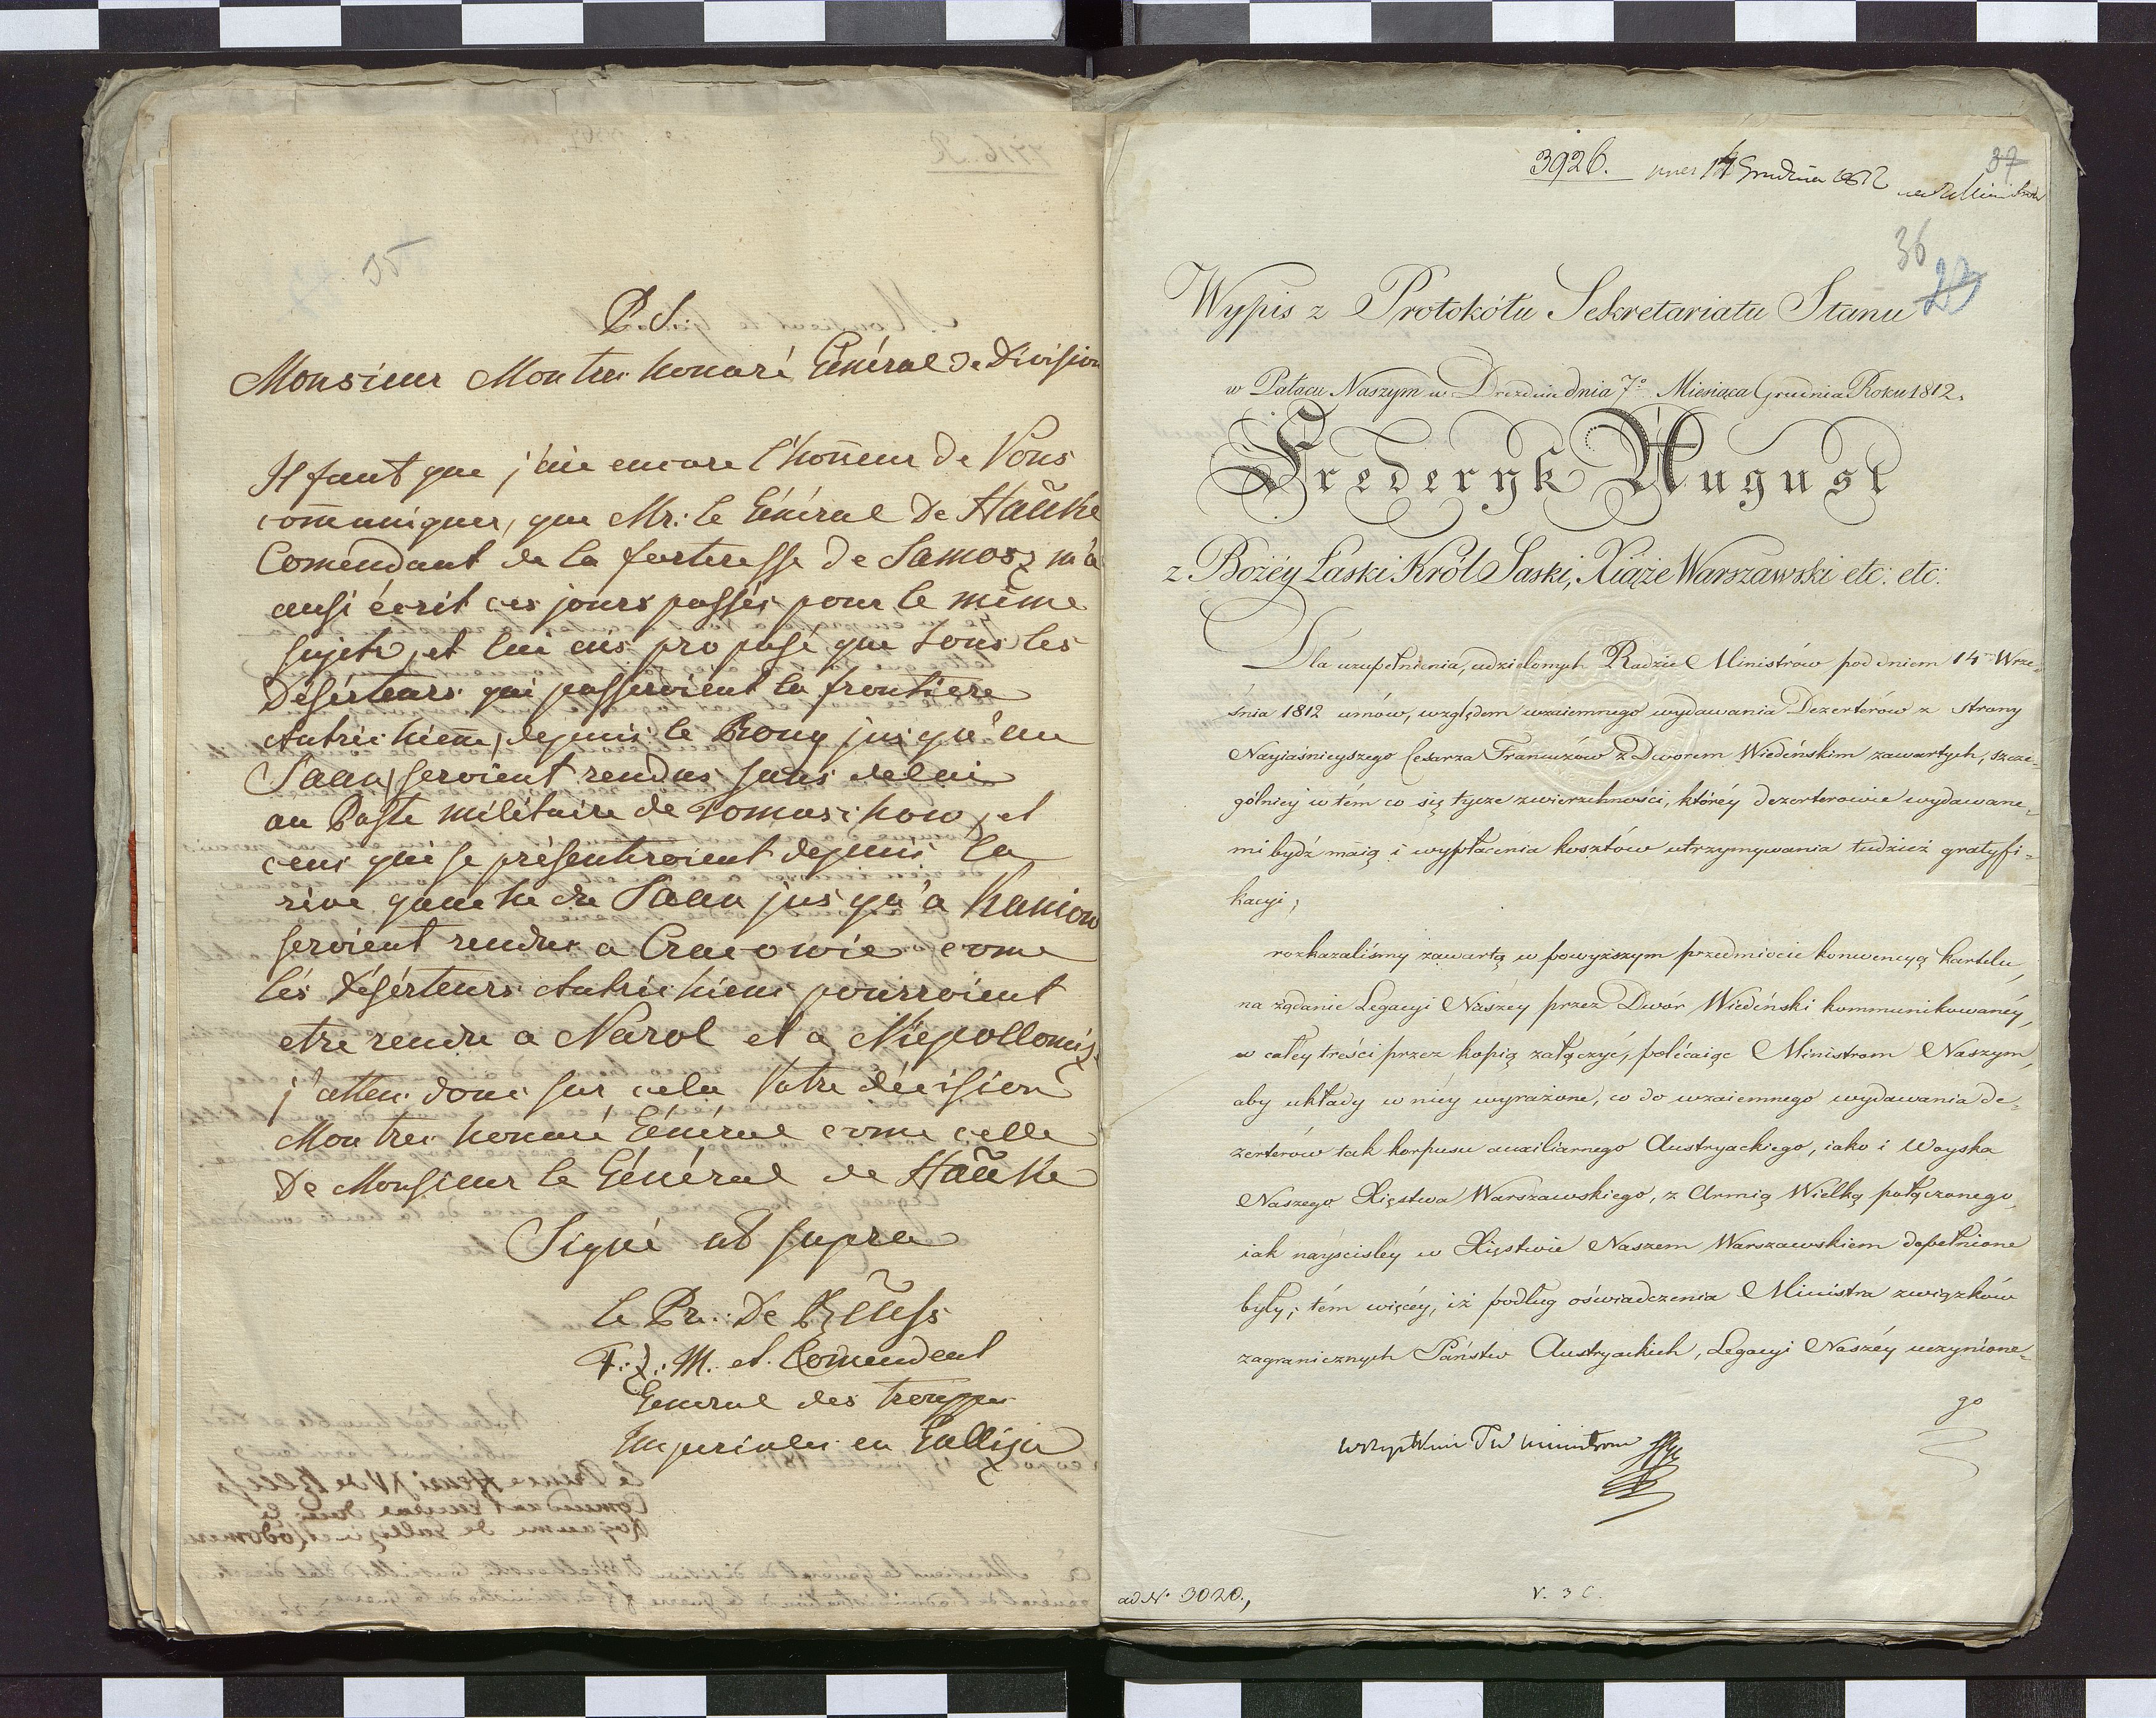 35
P. S.
Monsieur Mon tres honoré Général de Division
Il faut que j'aie encore l'honneur de Vous
com̄uniquer, que Mr: le Général De Hauke
Com̄endant de la forteresse de Samosz m'a
ausi écrit ces jours passés pour le même
sujet, et lui ais proposé que tous les
Déserteurs qui passeroient la frontiere
Autrichien̄e, depuis le Boug jusqu'au
Saan, seroient rendus sans delai
au Poste militaire de Tomaschow, et
ceux qui se présenteroient depuis la
rive gauche du Saan jusqu'a Kaniow
seroient rendus a Cracowie come
les Déserteurs Autrichiens pourroient
etre rendu a Narol et a Niepollomiz.
j'atten donc sur cela Votre décision
Mon tres honoré Général come celle
De Monsieur le Général de Hauke
Signé ut supra
le Pr: De Reuss
F: Z: M. et Comendent
General des trouppes
Imperiales en Gallizie
3926. 14 Grudnia 1812
37
36
23
Wypis z Protokółu Sekretariatu Stanu
w Pałacu Naszym w Dreznie dnia 7o Miesiąca Grudnia Roku 1812.
Frederyk August
z Bożéy Łaski Król Saski, Xiąże Warszawski etc: etc:
Dla uzupełnienia, udzielonych Radzie Ministrów pod dniem 14 Wrze-
śnia 1812 umów, względem wzaiemnego wydawania Dezerterów z strony
Nayiaśnieyszego Cesarza Francuzów z Dworem Wiedeńskim zawartych, szcze-
gólniey w tém co się tycze zwierzchności, któréy dezerterowie wydawane-
mi bydź maią i wypłacenia kosztów utrzymywania tudzież gratyfi-
kacyi;
rozkazaliśmy zawartą w powyższym przedmiocie konwencyą kartelu,
na żądanie Legacyi Naszéy przez Dwór Wiedeński kommunikowanéy,
w całey treści przez kopią załączyć, polécaiąc Ministrom Naszym,
aby układy w niéy wyrażone, co do wzaiemnego wydawania de-
zerterów tak korpusu auxiliarnego Austryackiego, iako i Woyska
Naszego Xięstwa Warszawskiego, z Armią Wielką połączonego,
iak nayściśley w Xięstwie Naszem Warszawskiem dopełnione
były; tém więcéy, iż podług oświadczenia Ministra związków
zagranicznych Państw Austryackich, Legacyi Naszéy uczynione-
go
wszystkim JW Ministrom
ad No 3020.,
V. 3 C.